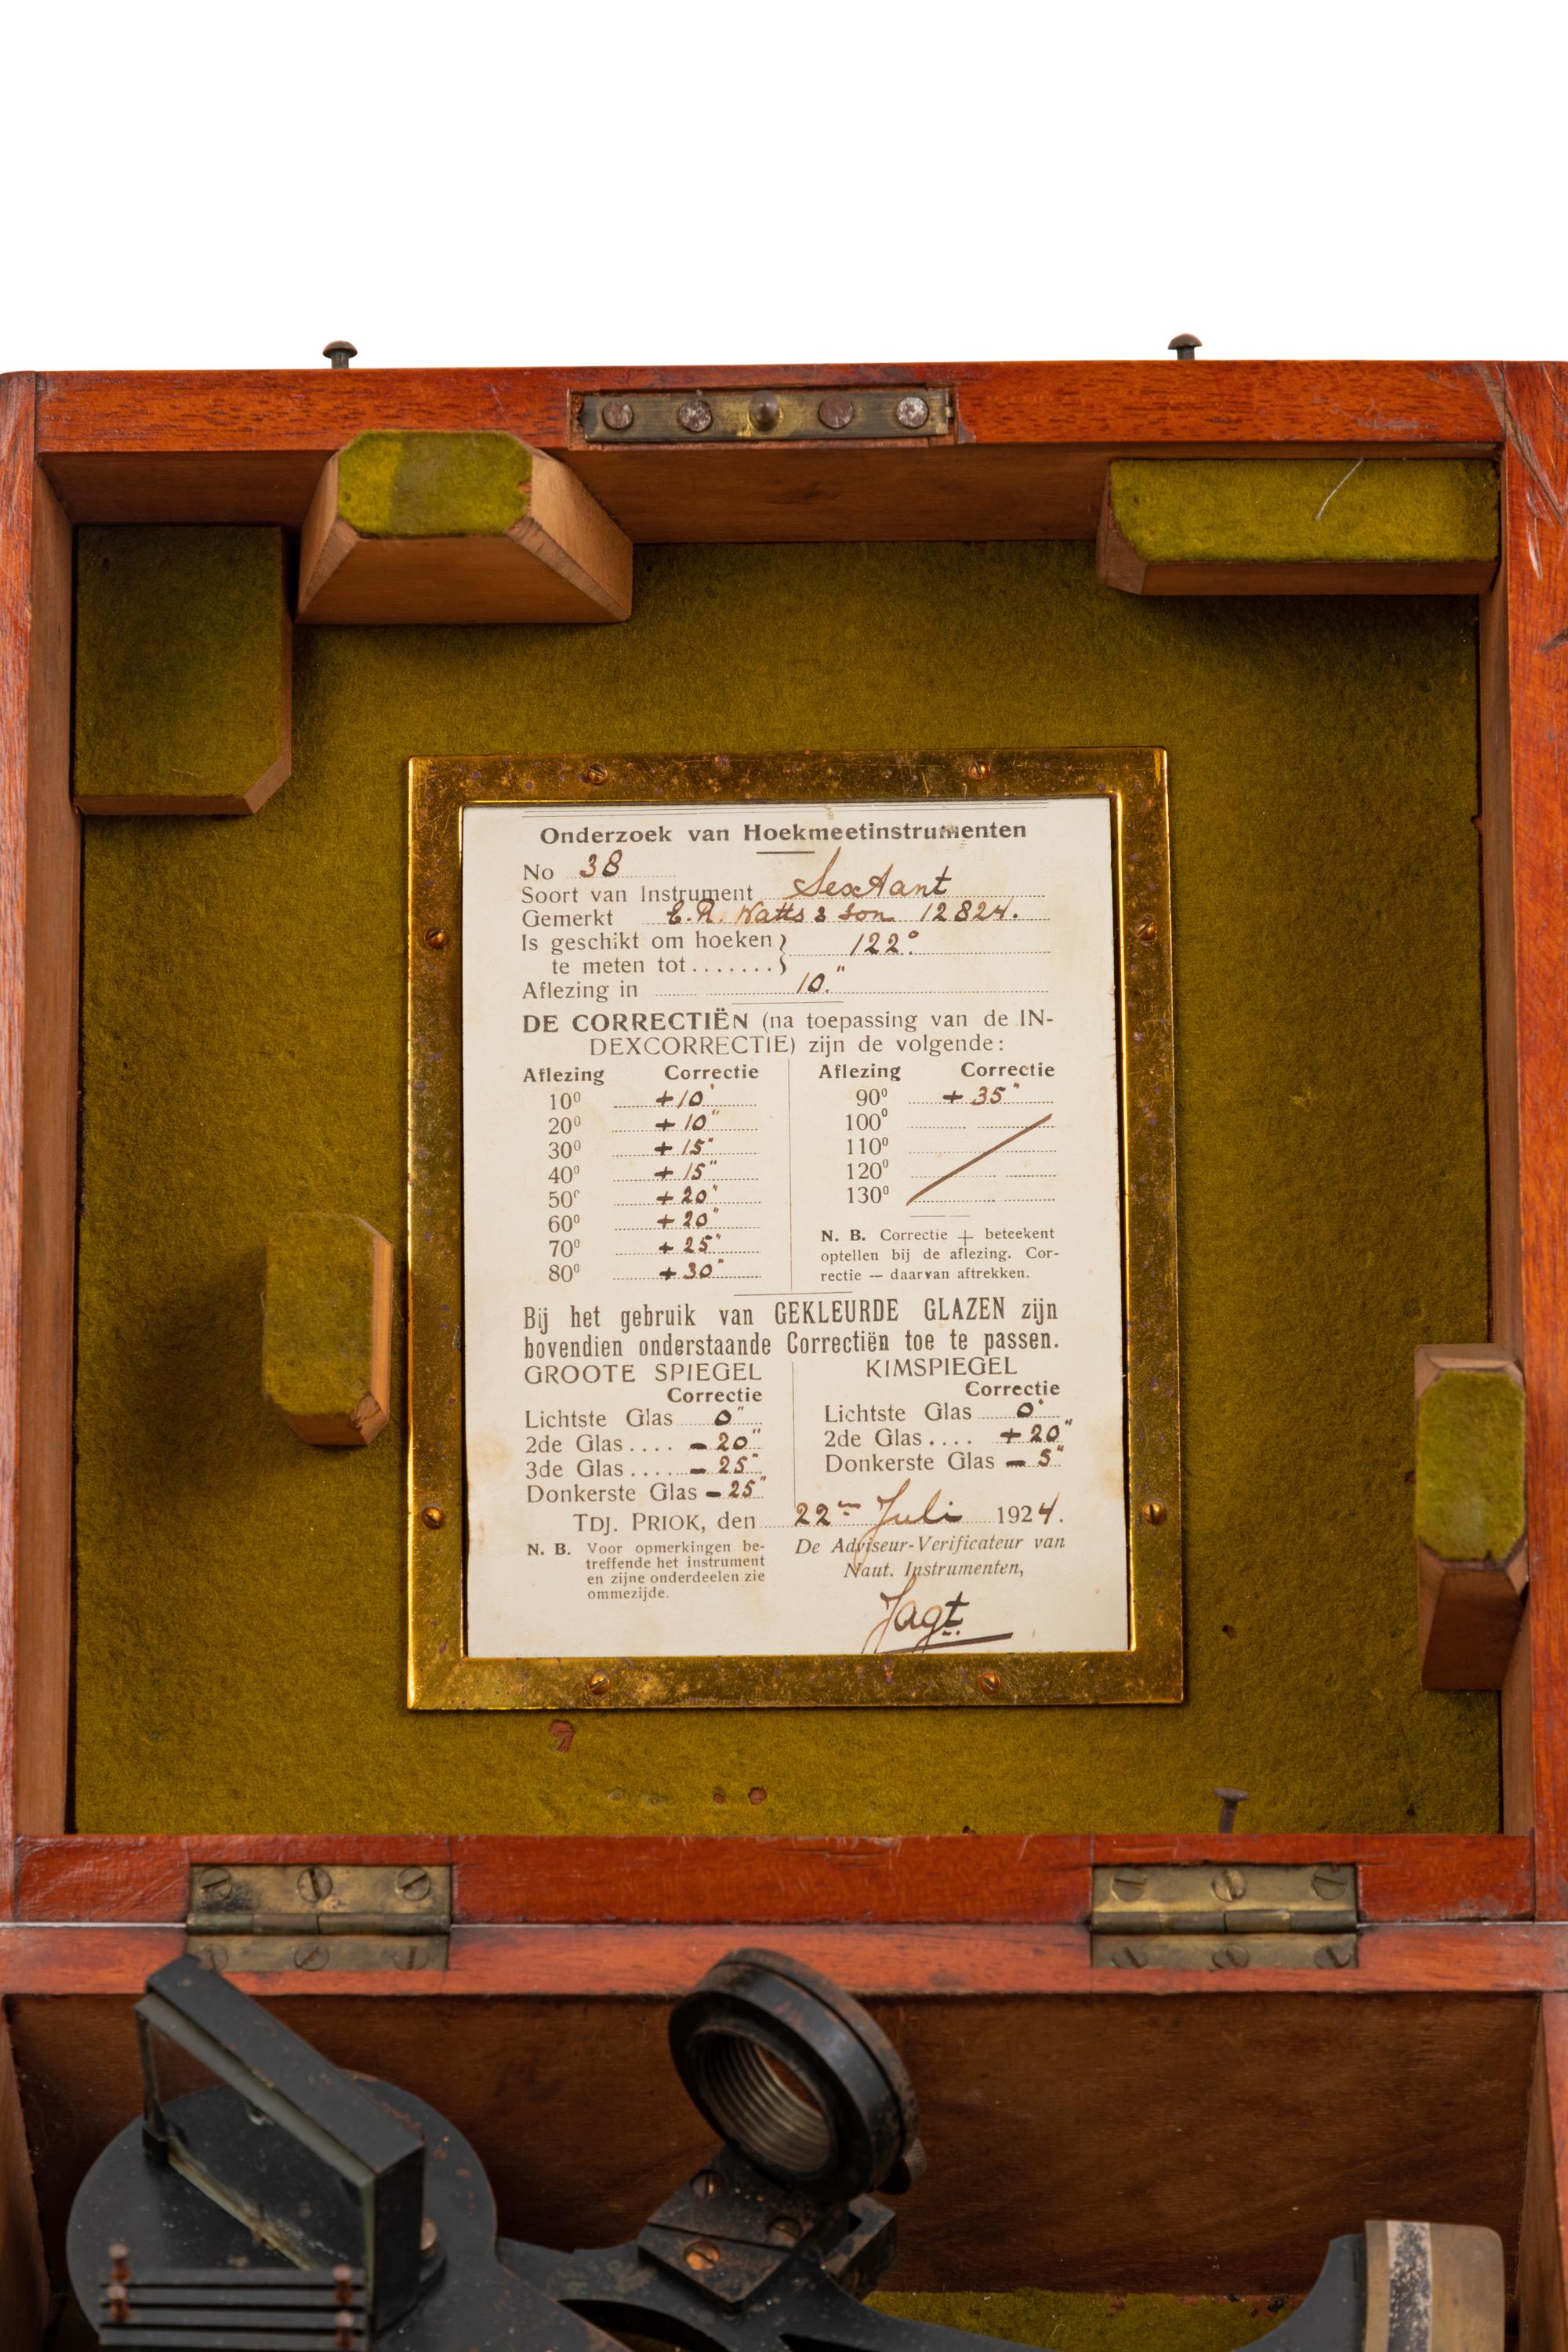 Onderzoek van Hoekmeetinstrumenten
No 38
Soort van Instrument Sextant
Gemerkt E.R. Watts & Son 12824.
Is geschikt om hoeken } 122°
te meten tot.......}
Aflezing in 10."
DE CORRECTIËN (na toepassing van de IN-
DEXCORRECTIE) zijn de volgende:
Aflezing Correctie
10⁰ +10"
20⁰ +10"
30⁰ +15"
40⁰ +15"
50⁰ +20"
60⁰ +20"
70⁰ +25"
80⁰ +30"
Aflezing Correctie
90⁰ +35"
100⁰
110⁰
120⁰
130⁰
N. B. Correctie + beteekent
optellen bij de aflezing. Cor-
rectie — daarvan aftrekken.
Bij het gebruik van GEKLEURDE GLAZEN zijn
bovendien onderstaande Correctiën toe te passen.
GROOTE SPIEGEL
Correctie
Lichtste Glas 0"
2de Glas.... - 20"
3de Glas.... - 25"
Donkerste Glas - 25"
KIMSPIEGEL
Correctie
Lichtste Glas 0"
2de Glas.... + 20"
Donkerste Glas - 5"
TDJ. PRIOK, den 22en Juli 1924.
N. B. Voor opmerkingen be-
treffende het instrument
en zijne onderdeelen zie
ommezijde.
De Adviseur-Verificateur van
Naut. Instrumenten,
Jagt